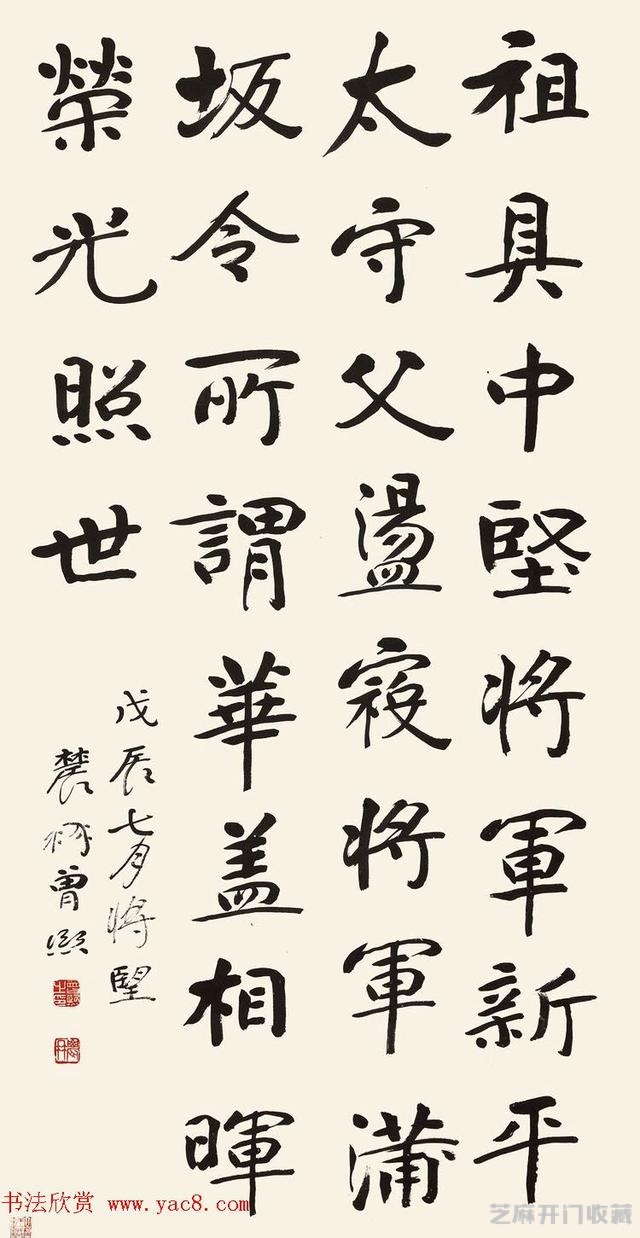 祖具中堅将軍新平
太守父盪寇将軍蒲
坂令所謂華盖相暉
榮光照世
戊辰七月将望
農髯曾熙
书法欣赏 www.yac8.com
芝麻开门收藏